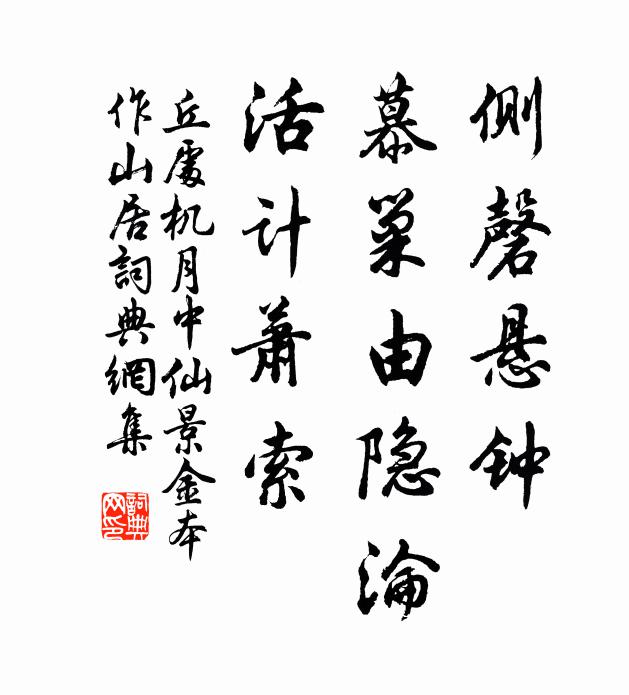 侧磬悬钟
慕巢由隐沦
活计萧索
丘處机月中仙景金本
作山居詞典網集
詞典网印